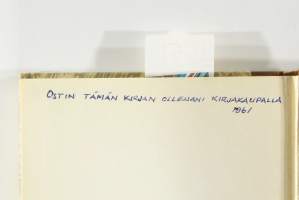 OSTIN TÄMÄN KIRJAN OLLESSANI KIRJAKAUPALLA
1961